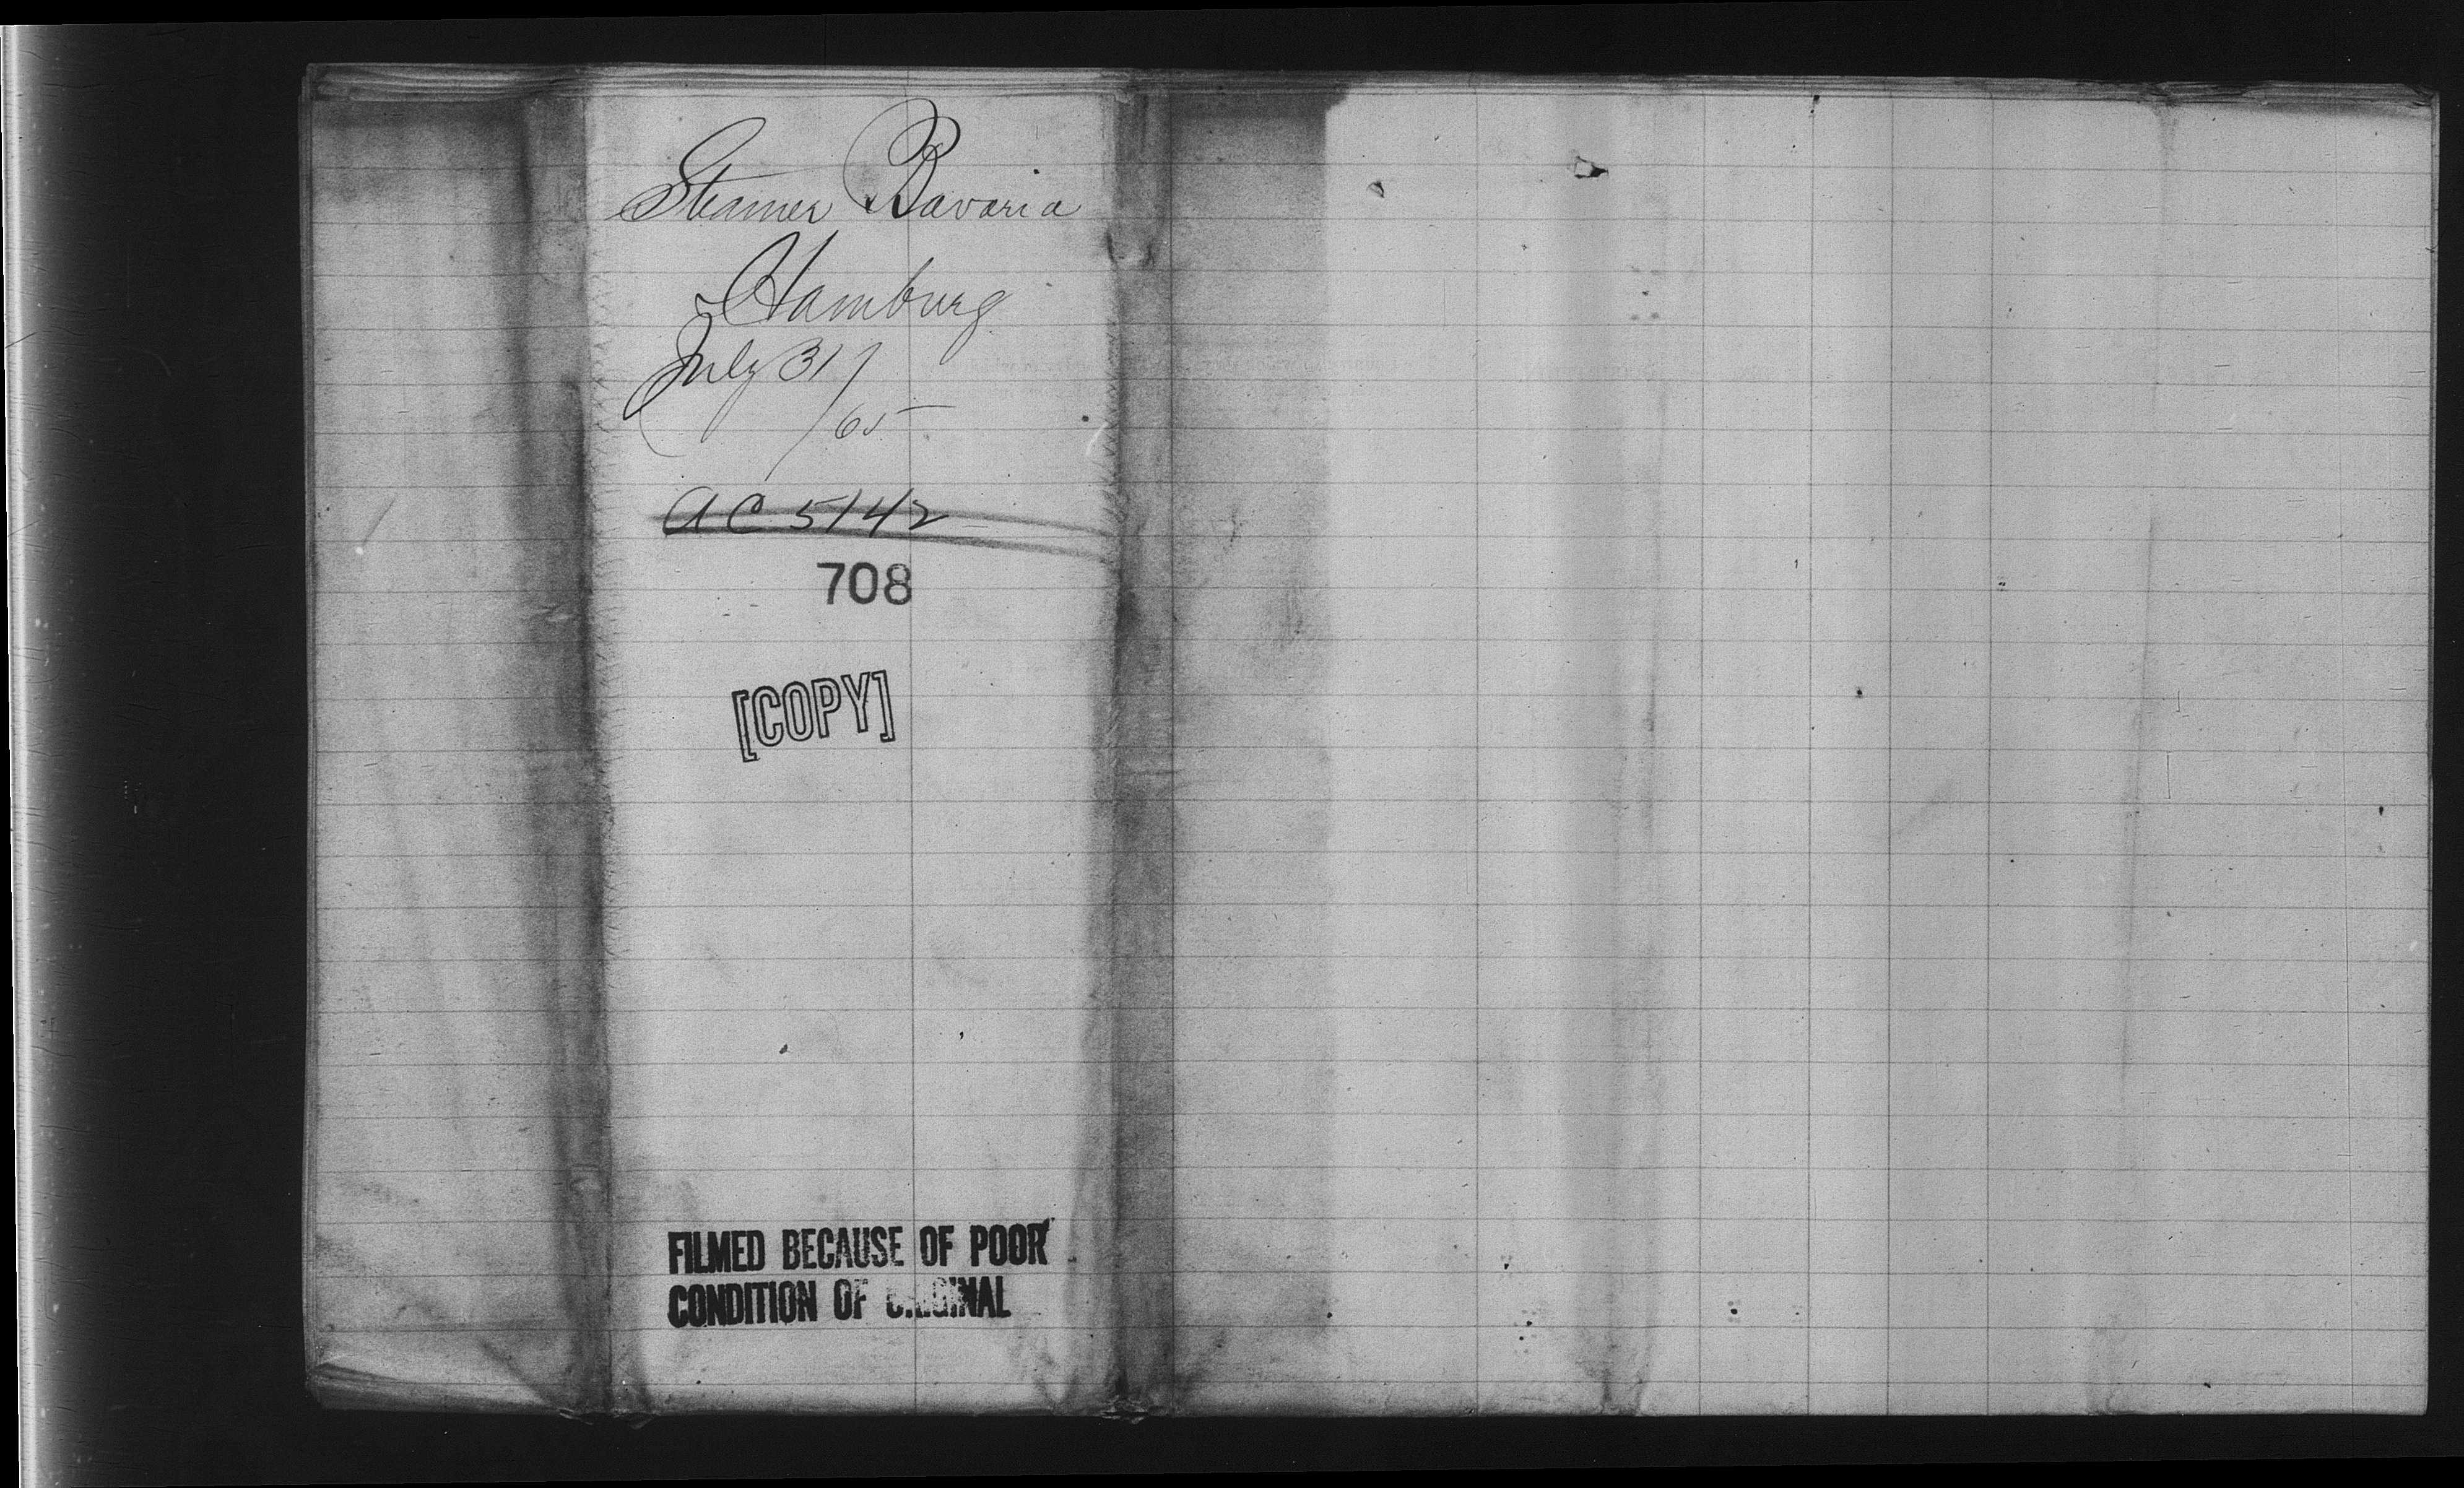 Steamer Bavaria
Hamburg
July 31/
/65
AC 5142
708
[COPY]
FILMED BECAUSE OF POOR
CONDITION OF ORIGINAL